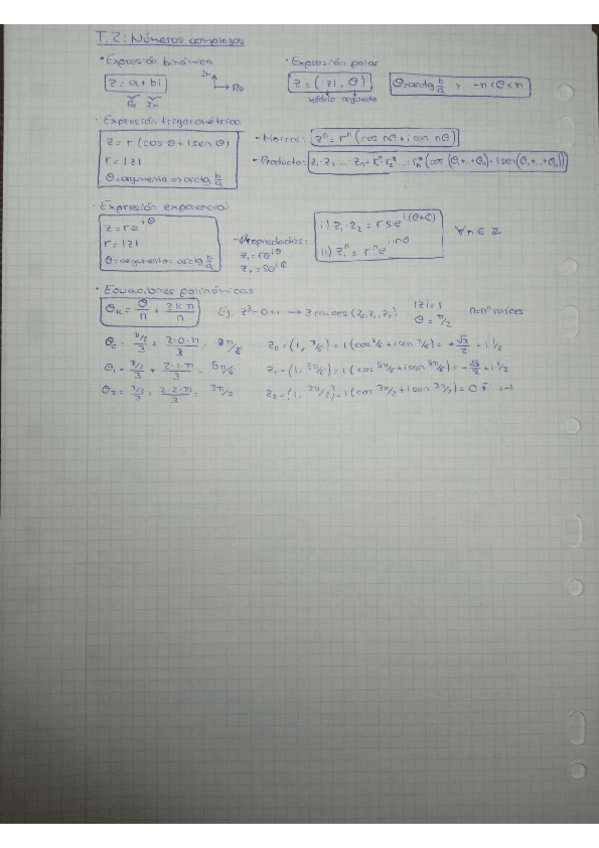 T.2: Números complejos
· Expresión binómica
z = a + bi
Re Im
Im
Re
· Expresión polar
z = (|z|, θ)
módulo argumento
θ = arctg b/a, -π < θ < π
· Expresión trigonométrica
z = r (cos θ + i sen θ)
r = |z|
θ = argumento = arctg b/a
- Moivre: zⁿ = rⁿ (cos nθ + i sen nθ)
- Producto:
· Expresión exponencial
z = r e^(iθ)
r = |z|
θ = argumento = arctg b/a
- Propiedades:
z₁ = r e^(iθ)
z₁ = s e^(iϕ)
i) z₁ · z₂ = r s e^(i(θ+ϕ))
ii) z₁ⁿ = rⁿ e^(inθ)
∀n ∈ ℤ
· Ecuaciones polinómicas
θₖ = θ/n + 2kπ/n
Ej. z³ = 0 + i → 3 raíces (z₀, z₁, z₂)
|z| = 1
θ = π/2
n = nº raíces
θ₀ = (π/2)/3 + (2·0·π)/3 = π/6
z₀ = (1, π/6) = 1 (cos π/6 + i sen π/6) = +√3/2 + i 1/2
θ₁ = (π/2)/3 + (2·1·π)/3 = 5π/6
z₁ = (1, 5π/6) = 1 (cos 5π/6 + i sen 5π/6) = -√3/2 + i 1/2
θ₂ = (π/2)/3 + (2·2·π)/3 = 3π/2
z₂ = (1, 3π/2) = 1 (cos 3π/2 + i sen 3π/2) = 0